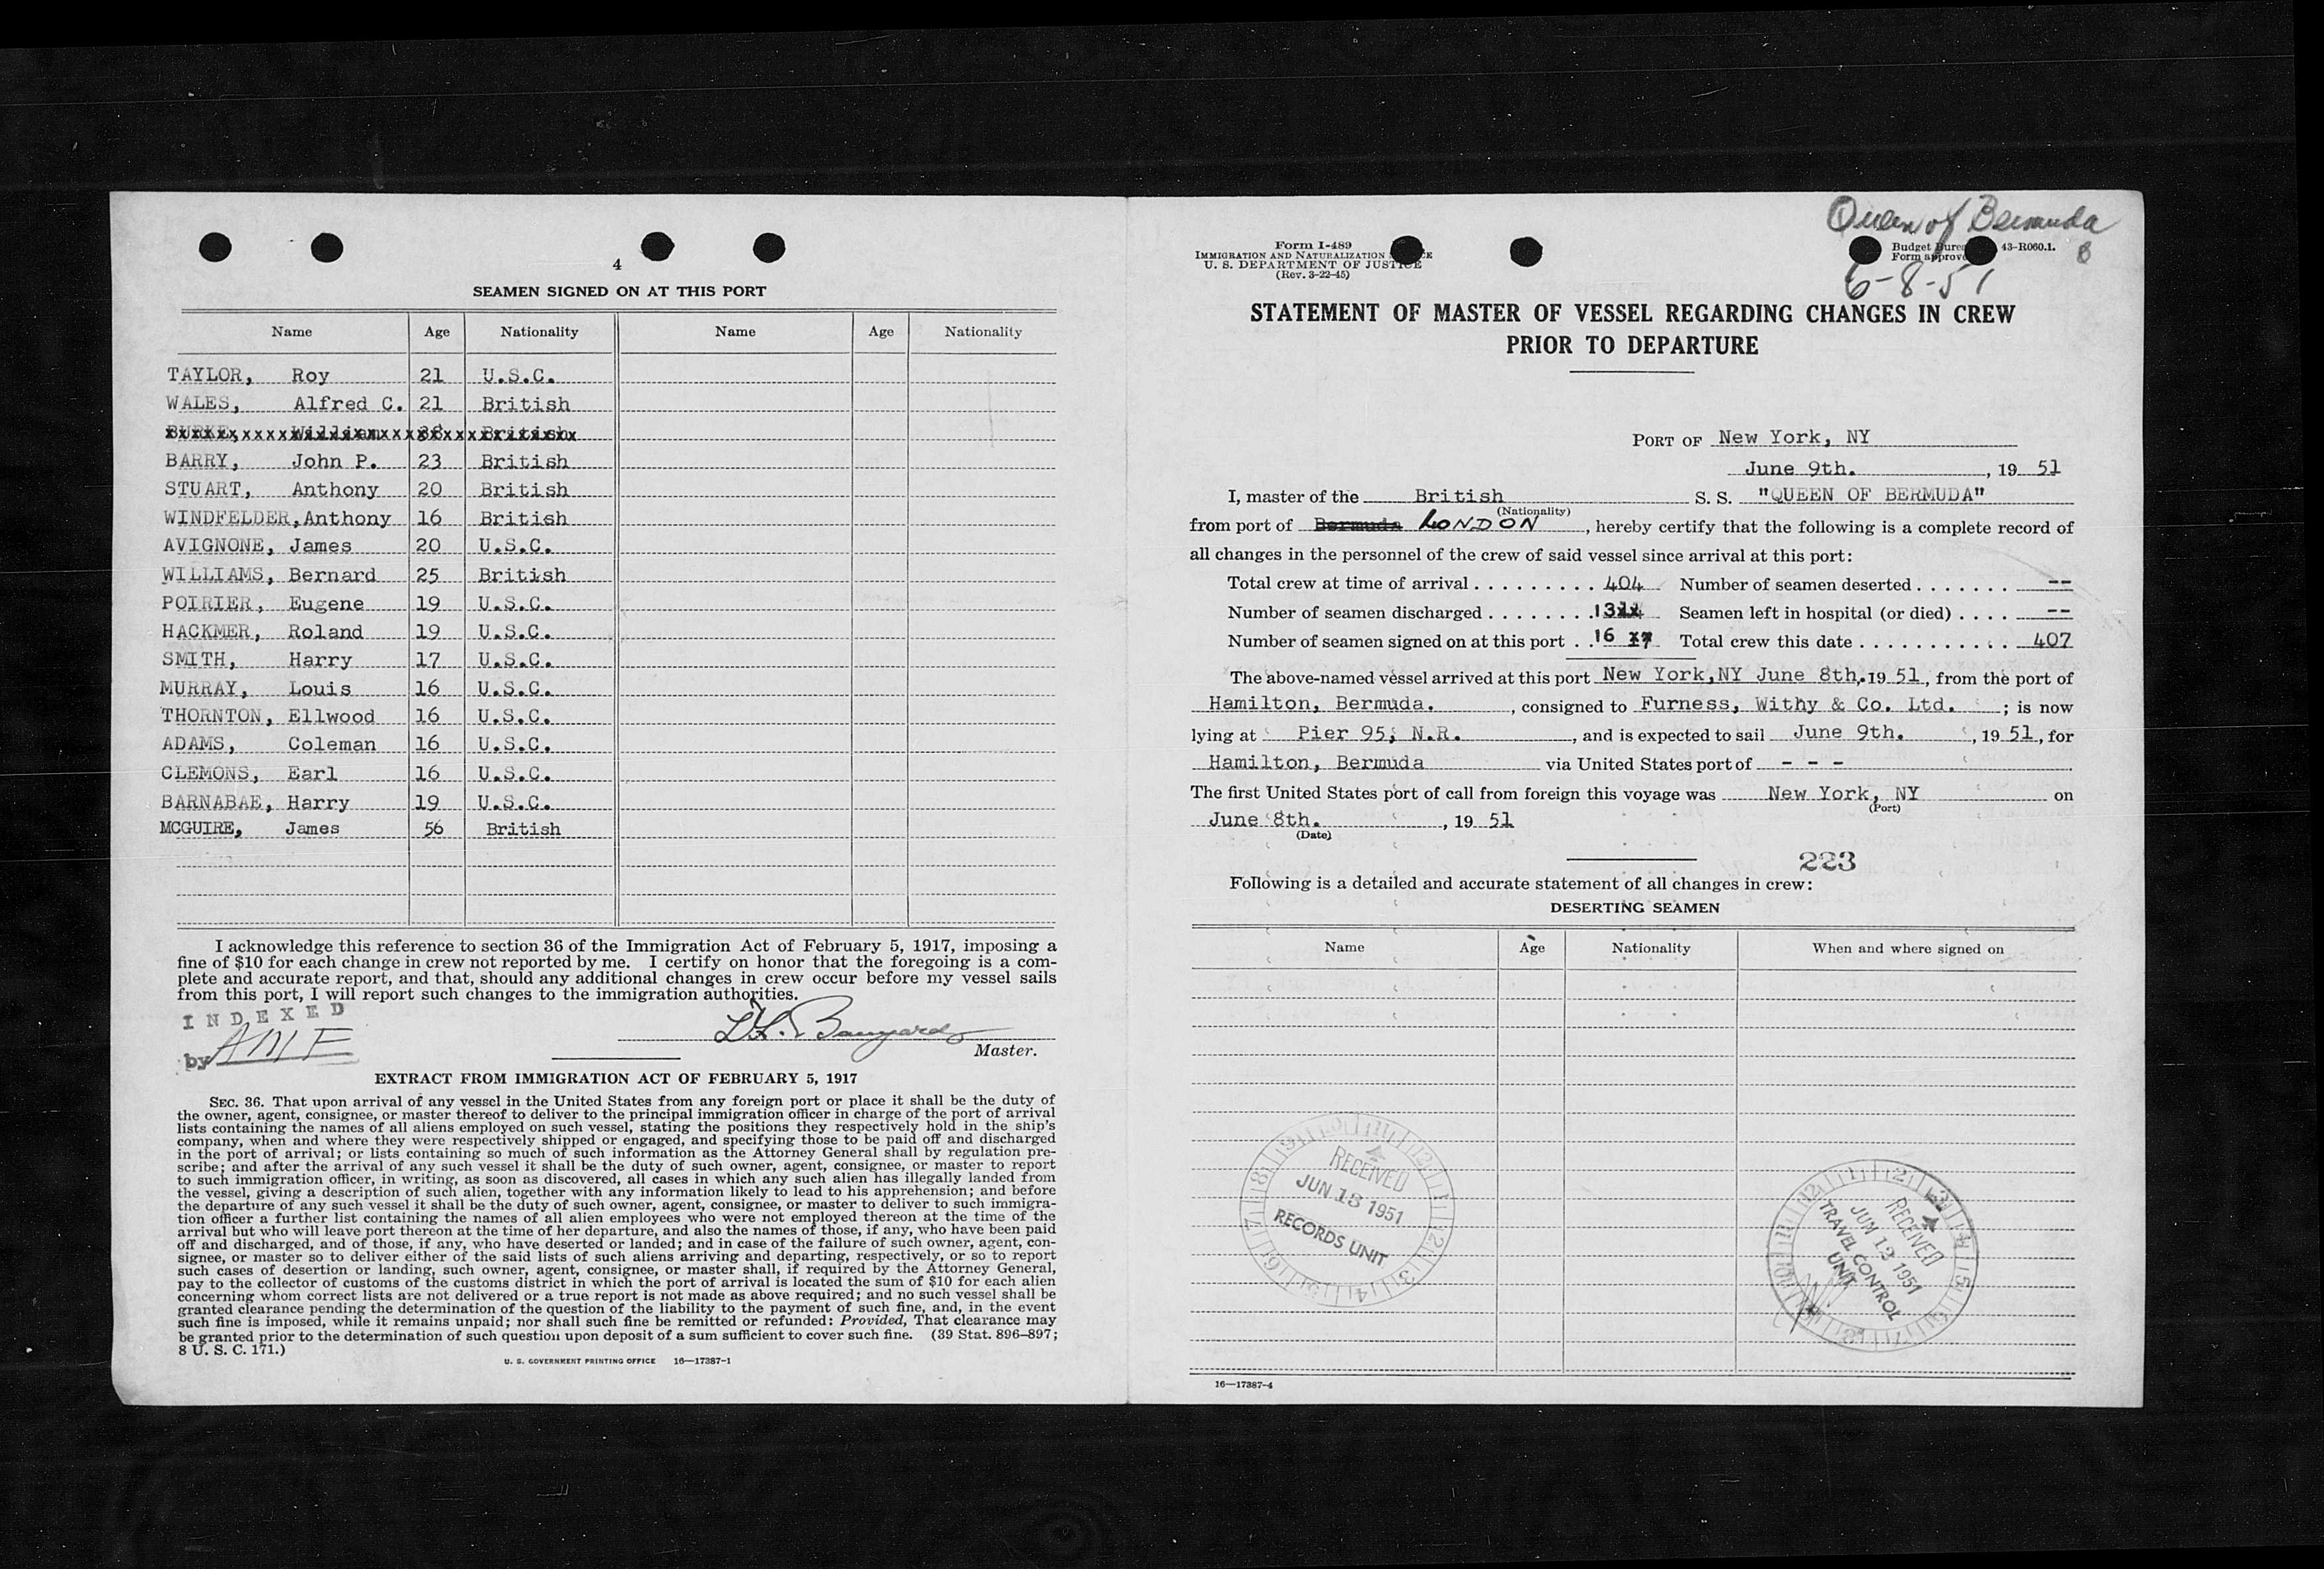 4
SEAMEN SIGNED ON AT THIS PORT
Name Age Nationality Name Age Nationality
TAYLOR, Roy 21 U.S.C.
WALES, Alfred C. 21 British
BURKE, William 38 British
BARRY, John P. 23 British
STUART, Anthony 20 British
WINDFELDER, Anthony 16 British
AVIGNONE, James 20 U.S.C.
WILLIAMS, Bernard 25 British
POIRIER, Eugene 19 U.S.C.
HACKMER, Roland 19 U.S.C.
SMITH, Harry 17 U.S.C.
MURRAY, Louis 16 U.S.C.
THORNTON, Ellwood 16 U.S.C.
ADAMS, Coleman 16 U.S.C.
CLEMONS, Earl 16 U.S.C.
BARNABAE, Harry 19 U.S.C.
MCGUIRE, James 56 British
I acknowledge this reference to section 36 of the Immigration Act of February 5, 1917, imposing a
fine of $10 for each change in crew not reported by me. I certify on honor that the foregoing is a com-
plete and accurate report, and that, should any additional changes in crew occur before my vessel sails
from this port, I will report such changes to the immigration authorities.
INDEXED
by AMF
Master.
EXTRACT FROM IMMIGRATION ACT OF FEBRUARY 5, 1917
SEC. 36. That upon arrival of any vessel in the United States from any foreign port or place it shall be the duty of
the owner, agent, consignee, or master thereof to deliver to the principal immigration officer in charge of the port of arrival
lists containing the names of all aliens employed on such vessel, stating the positions they respectively hold in the ship's
company, when and where they were respectively shipped or engaged, and specifying those to be paid off and discharged
in the port of arrival; or lists containing so much of such information as the Attorney General shall by regulation pre-
scribe; and after the arrival of any such vessel it shall be the duty of such owner, agent, consignee, or master to report
to such immigration officer, in writing, as soon as discovered, all cases in which any such alien has illegally landed from
the vessel, giving a description of such alien, together with any information likely to lead to his apprehension; and before
the departure of any such vessel it shall be the duty of such owner, agent, consignee, or master to deliver to such immigra-
tion officer a further list containing the names of all alien employees who were not employed thereon at the time of the
arrival but who will leave port thereon at the time of her departure, and also the names of those, if any, who have been paid
off and discharged, and of those, if any, who have deserted or landed; and in case of the failure of such owner, agent, con-
signee, or master so to deliver either of the said lists of such aliens arriving and departing, respectively, or so to report
such cases of desertion or landing, such owner, agent, consignee, or master shall, if required by the Attorney General,
pay to the collector of customs of the customs district in which the port of arrival is located the sum of $10 for each alien
concerning whom correct lists are not delivered or a true report is not made as above required; and no such vessel shall be
granted clearance pending the determination of the question of the liability to the payment of such fine, and, in the event
such fine is imposed, while it remains unpaid; nor shall such fine be remitted or refunded: Provided, That clearance may
be granted prior to the determination of such question upon deposit of a sum sufficient to cover such fine. (39 Stat. 896–897;
8 U. S. C. 171.)
U. S. GOVERNMENT PRINTING OFFICE 16—17387-1
Queen of Bermuda
Form I-489
IMMIGRATION AND NATURALIZATION
U. S. DEPARTMENT OF JUSTICE
(Rev. 3-22-45)
Budget 43-R060.1.
Form
6-8-51
STATEMENT OF MASTER OF VESSEL REGARDING CHANGES IN CREW
PRIOR TO DEPARTURE
PORT OF New York, NY
June 9th. , 19 51
I, master of the British S. S. "QUEEN OF BERMUDA"
(Nationality)
from port of Bermuda LONDON , hereby certify that the following is a complete record of
all changes in the personnel of the crew of said vessel since arrival at this port:
Total crew at time of arrival . . . . . . . . . 404 Number of seamen deserted . . . . . . . --
Number of seamen discharged . . . . . . . . 13 Seamen left in hospital (or died) . . . . --
Number of seamen signed on at this port . . 16 Total crew this date . . . . . . . . . . . 407
The above-named vessel arrived at this port New York, NY June 8th, 19 51, from the port of
Hamilton, Bermuda. , consigned to Furness, Withy & Co. Ltd. ; is now
lying at Pier 95, N.R. , and is expected to sail June 9th. , 19 51, for
Hamilton, Bermuda via United States port of - - -
The first United States port of call from foreign this voyage was New York, NY on
(Port)
June 8th. , 19 51
(Date)
223
Following is a detailed and accurate statement of all changes in crew:
DESERTING SEAMEN
Name Age Nationality When and where signed on
RECEIVED
JUN 18 1951
RECORDS UNIT
RECEIVED
JUN 13 1951
TRAVEL CONTROL
UNIT
16—17387-4